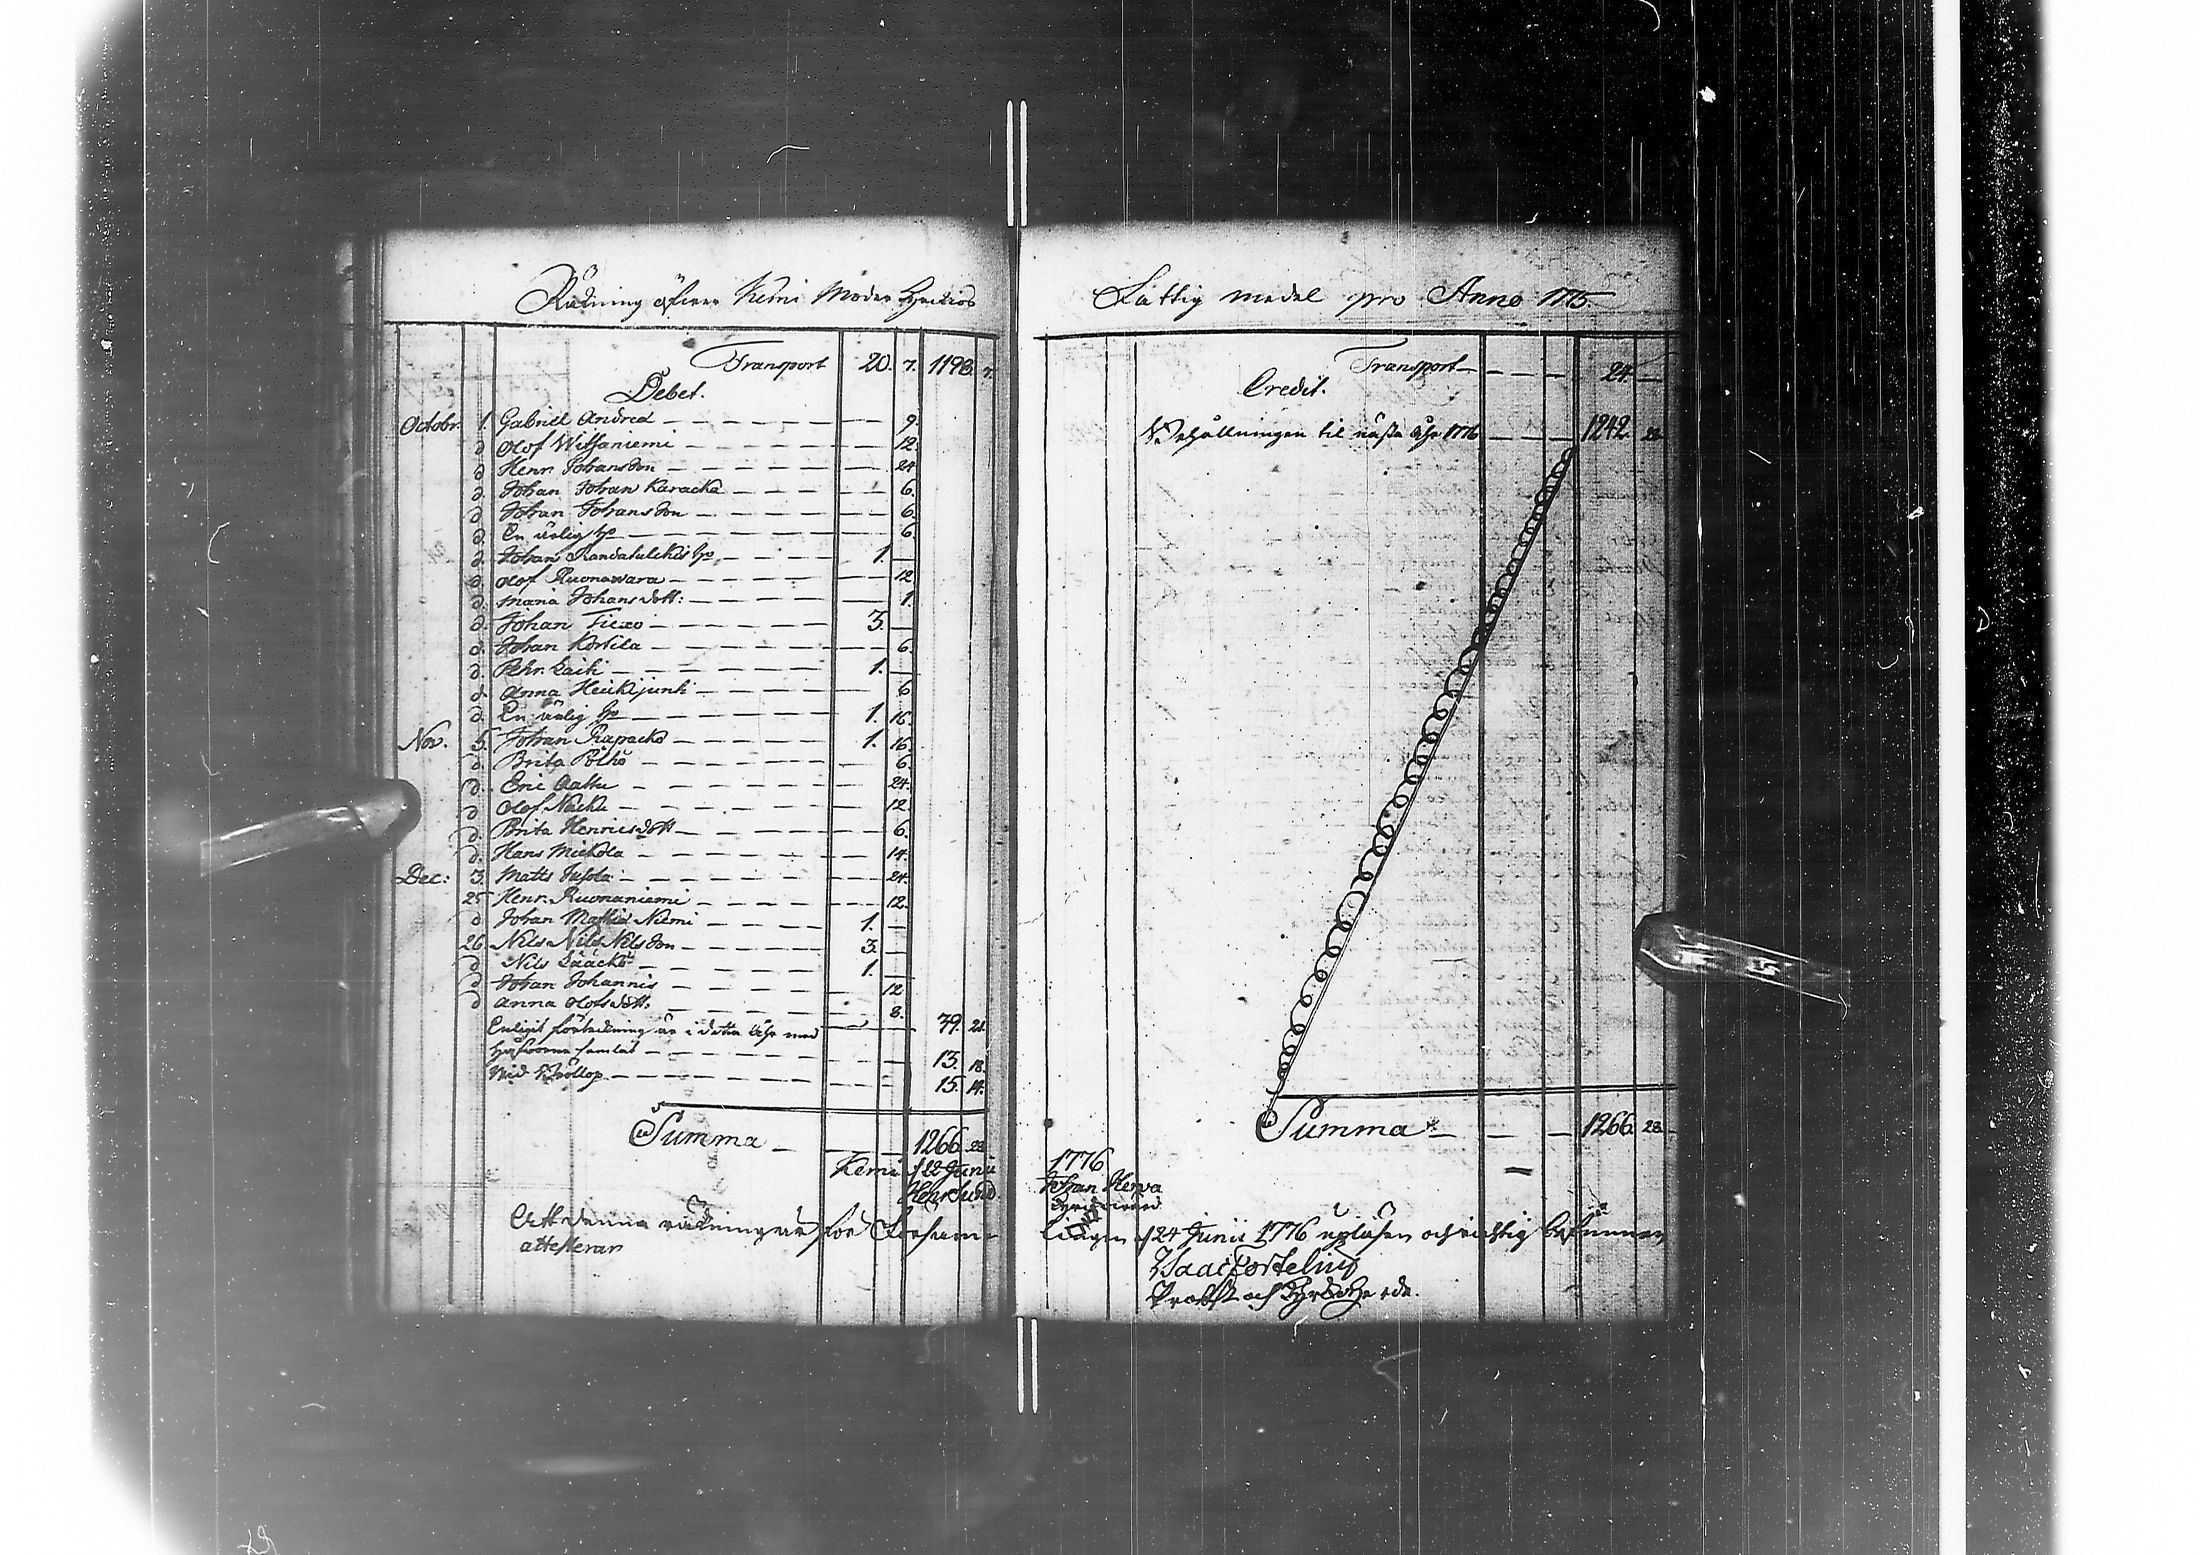 Räkning öfwer Kemi Moder Kyrckios
Transport 20. 7. 1198. 7.
Debet.
Octobr. 1. Gabriel Andred — 9.
d Olof Witsaniemi — 12.
d Henr. Johansson — 24
d. Johan Johan Karacka — 6.
d Johan Johansson — 6.
d. En ärlig hr — 6
d. Johan Randatulckis hr — 1. —
d. Olof Ruonawara — 12
d. Maria Johansdott: — 1.
d. Johan Tiexo — 3. —
d. Johan Kortila — 6.
d. Pehr Laiti — 1. —
d. Anna Heickijunk — 6
d. En ärlig hr — 1. 16.
Nov. 5. Johan Rapacko — 1. 16.
d. Brita Polho — 6.
d. Eric Aattu — 24.
d Olof Näcki — 12
d. Brita Henricsdott — 6.
d. Hans Mickola — 14.
Dec: 3. Matts Jusola — 24.
25 Henr. Ruonaniemi — 12.
d Johan Niemi — 1. —
26. Nils Nils Nilsson — 3. —
d Nils Lääckö — 1. —
d Johan Johannis — 12
d Anna Olofsdott: — 8.
Enligit förteckning är i detta Åhr med 79. 21.
Håfwarne samlat — 13. 18.
Wid Bröllop — 15. 14.
Summa — 1266. 23
Kemi d 22 Junii
Henr Lund
Att denna räkning är för Försam-
attesterar
Fattig medel pro Anno 1775.
Transport — 24. —
Credit.
Behållningen til nästa Åhr 1776 — 1242. 23
Summa — 1266. 23
1776
Johan Kerva
Kyrckiowärd
lingen d 24 Junii 1776 upläsen och richtig befunnen
Isaac Fortelius
Probst och Kyrckoherde.